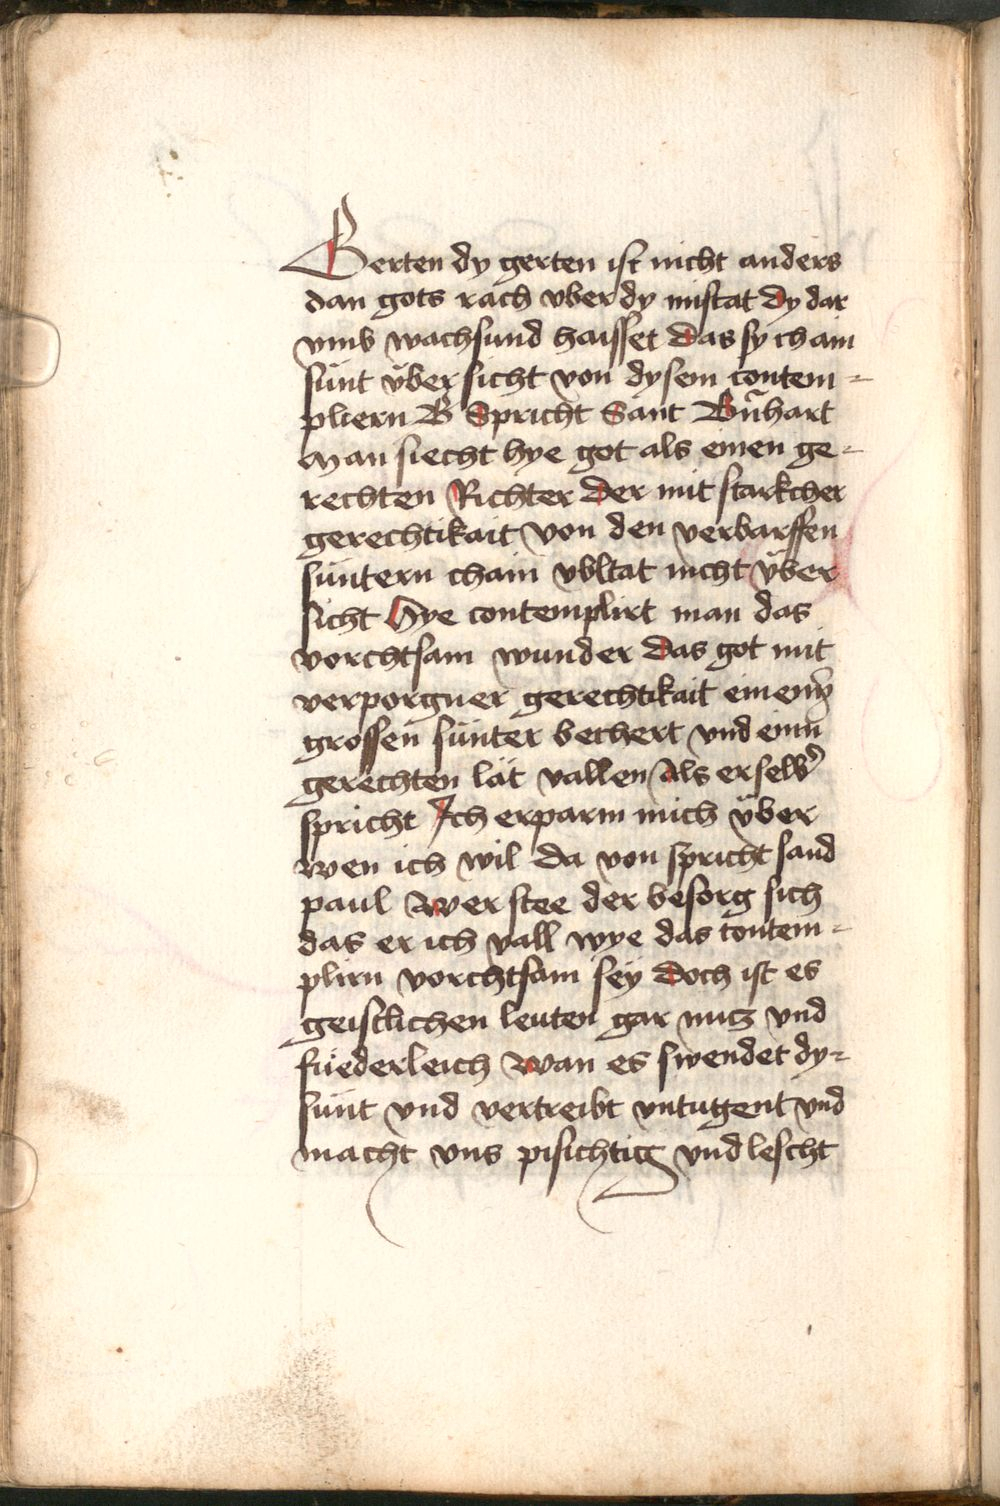 Gerten dy gerten ist nicht anders
dan gots rach vber dy mistat Dy dar
vmb wachsund haisset Das sy chain
sünt über sicht von dysem contem-
pliern B Spricht Sant Bn̄hart
Man siecht hye got als einen ge-
rechten Richter Der mit starkcher
gerechtikait von den verbarffen
süntern chain vbltat nicht über
sicht Hye contemplirt man das
vorchtsam wunder Das got mit
verporgner gerechtikait einem
grossen sünter bechert vnd einn
gerechten lät vallen Als er selbs
spricht Ich erparm mich über
wen ich wil Da von spricht sand
paul Wer stee der besorg sich
das er ich vall wye das contem-
plirn vorchtsam sey Doch ist es
geistlichen leuten gar nucz vnd
füederleich Wan es swendet dy-
sünt vnd vertreibt vntugent vnd
macht vns pisichtig vnd lescht